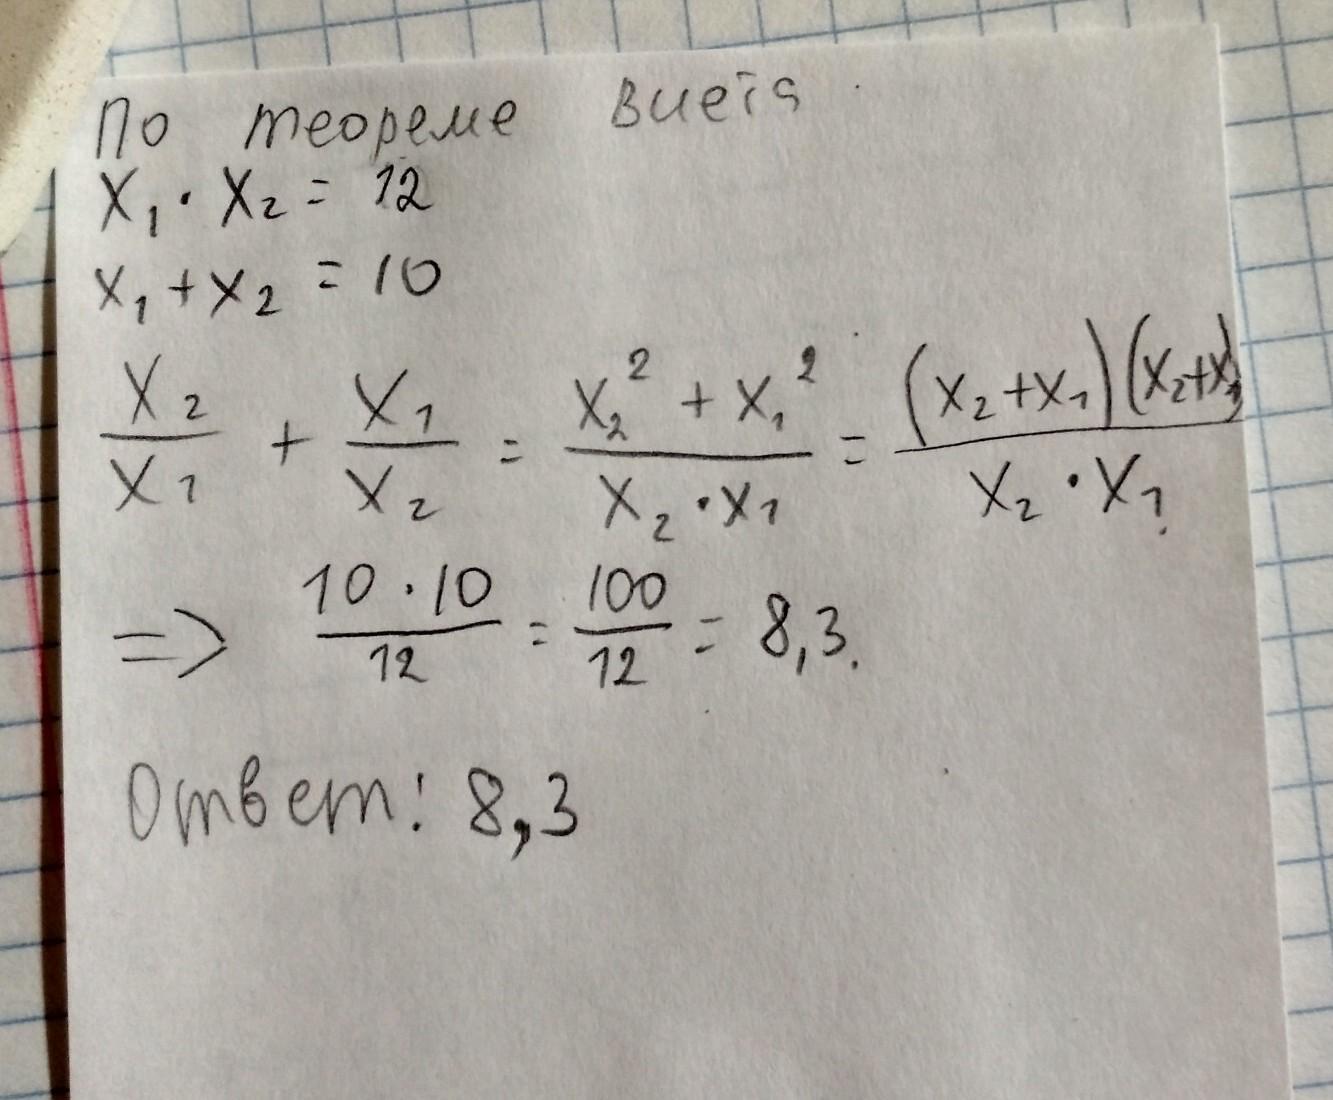 По теореме Виета
x₁ · x₂ = 12
x₁ + x₂ = 10
x₂/x₁ + x₁/x₂ = (x₂² + x₁²)/(x₂ · x₁) = ((x₂+x₁)(x₂+x₁))/(x₂ · x₁)
=> (10 · 10)/12 = 100/12 = 8,3.
Ответ: 8,3